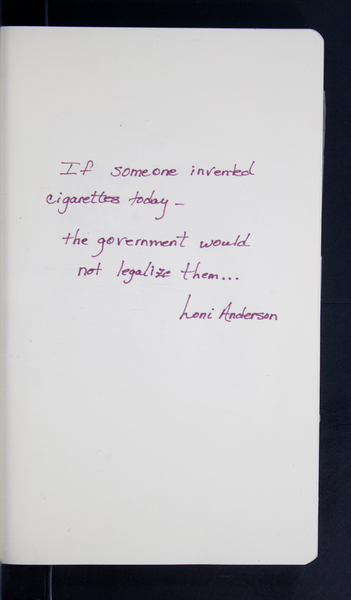 If someone invented
cigarettes today -
the government would
not legalize them...
Loni Anderson